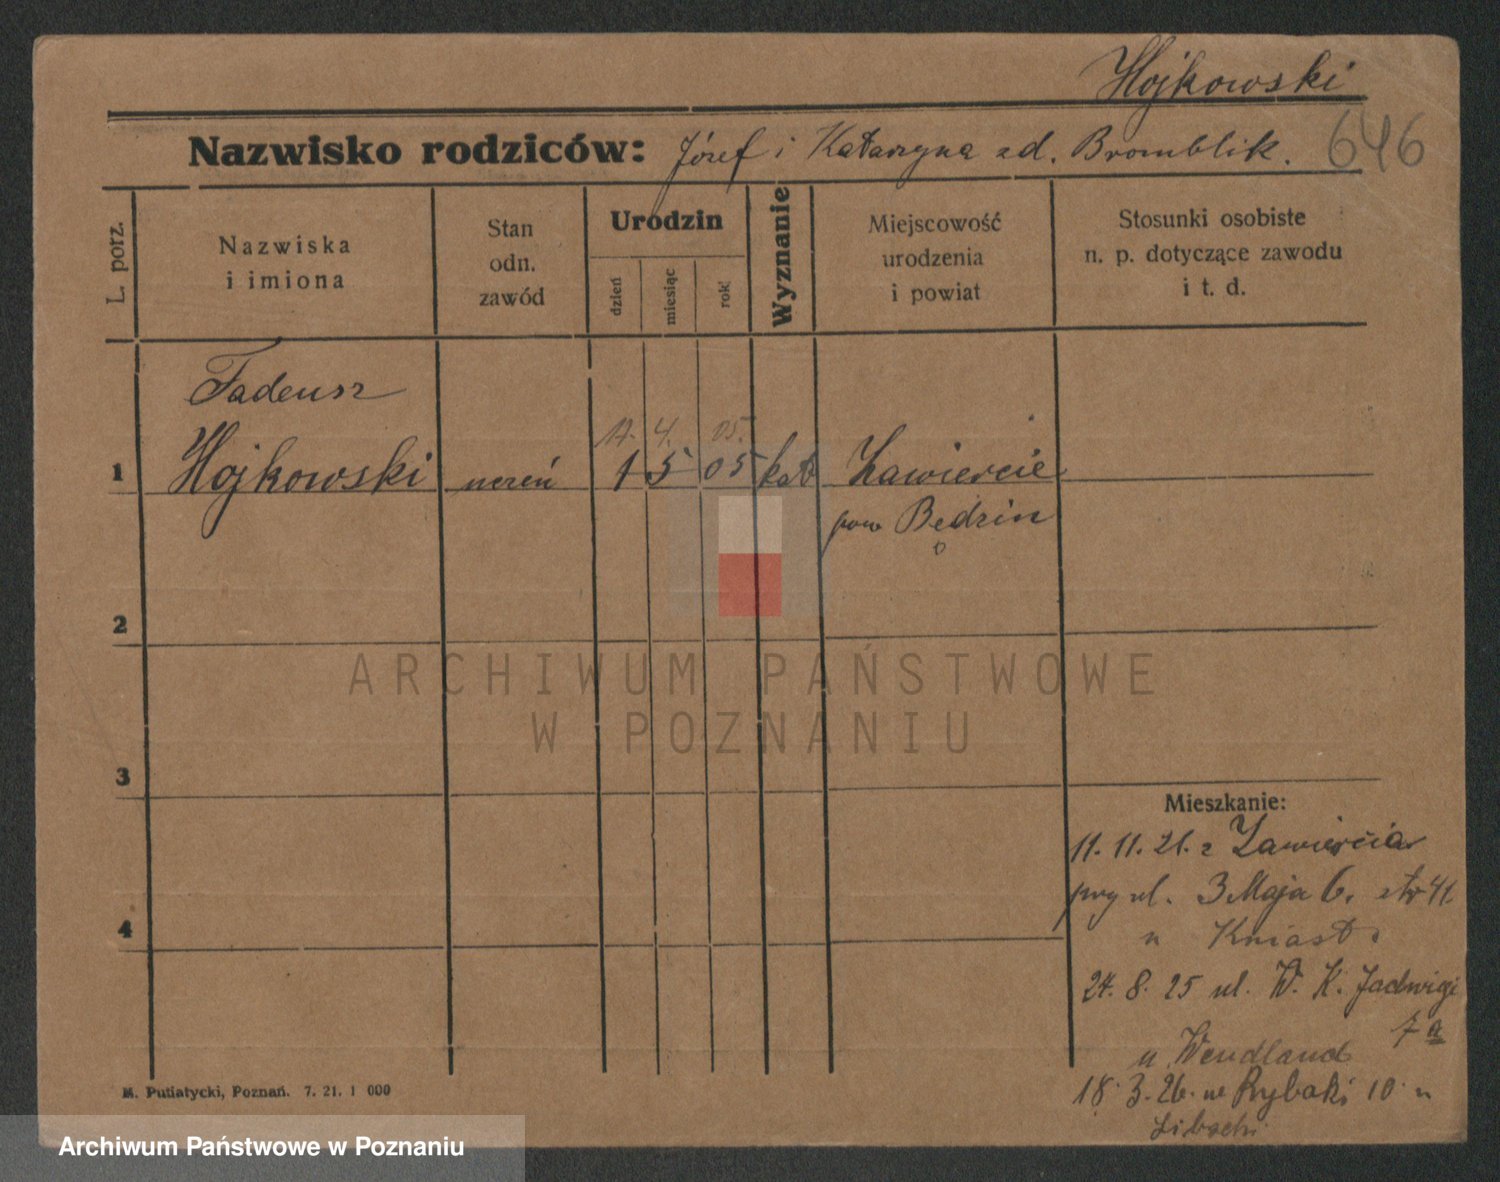 Hojkowski
Nazwisko rodziców: Józef i Katarzyna zd. Bromblik. 646
L. porz.
Nazwiska
i imiona
Stan
odn.
zawód
Urodzin
dzień
miesiąc
rok
Wyznanie
Miejscowość
urodzenia
i powiat
Stosunki osobiste
n. p. dotyczące zawodu
i t. d.
Tadeusz
4. 05.
1 Hojkowski uczeń 1 5 05 kat Zawiercie
pow Będzin
2
ARCHIWUM PAŃSTWOWE
W POZNANIU
3
Mieszkanie:
11. 11. 21. z Zawiercia
przy ul. 3 Maja 6. 
4
u Kniast
24. 8. 25 ul. W. K. Jadwigi
7 a
u Wendland
18. 3. 26. na Rybaki 10 u
M. Putiatycki, Poznań. 7. 21. 1 000
Archiwum Państwowe w Poznaniu